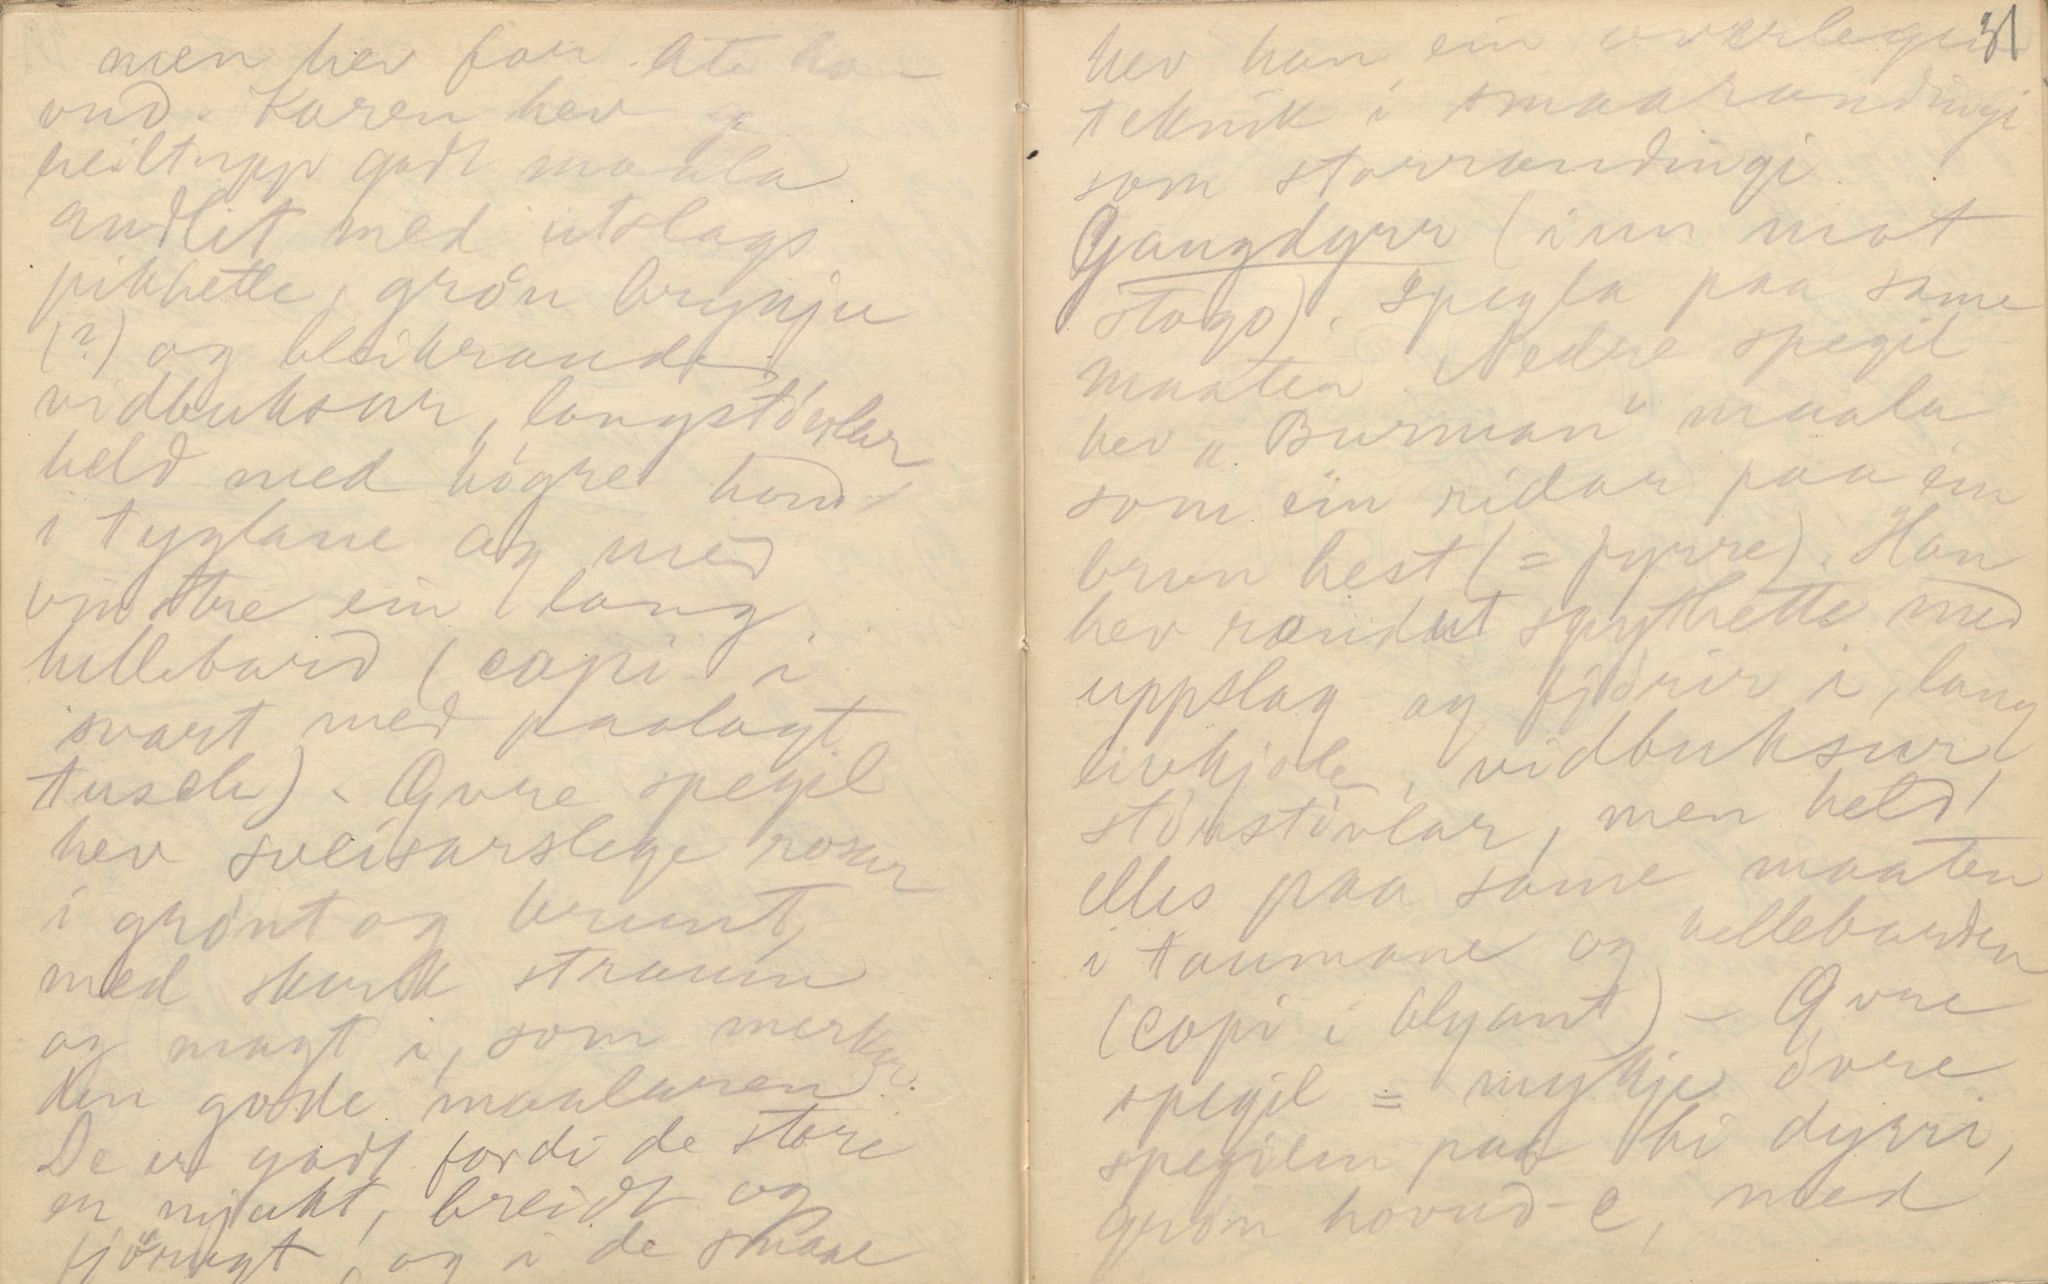 men hev for lite ho-
vud. Karen hev
heiltupp godt maala
andlit med utslags
pikhette, grön brynju
(?) og bleikraude
vidbuksur, langstövlar,
held med högre hond
i tyglane og med
vinstre ein lang
hellebard (copi i
svart med paalagt
tusch). Qvre spegil
hev sveisarslege rosur
i grönt og brunt,
med skurk straum
og magt i, som merkar
den gode maalaren.
De er godt fordi de store
er mjukt, breidt og
fjörugt, og i de smaae
31
hev han ein overlegen
teknik i smaarandingi
som storrandingi.
Gangdyrr (inn mot
stogo). Spegla paa same
maaten. Nedre spegil
hev "Burman" maala
som ein ridar paa ein
brun hest (= fyrre). Han
hev randut spythette med
uppslag og fjörir i, lang
livkjole, vidbuksur,
storstövlar, men held
elles paa same maaten
i taumane og hellebarden
(copi i blyant) - Qvre
spegil = mykje övre
spegilen paa hi dyrri,
grön hovud-C, med